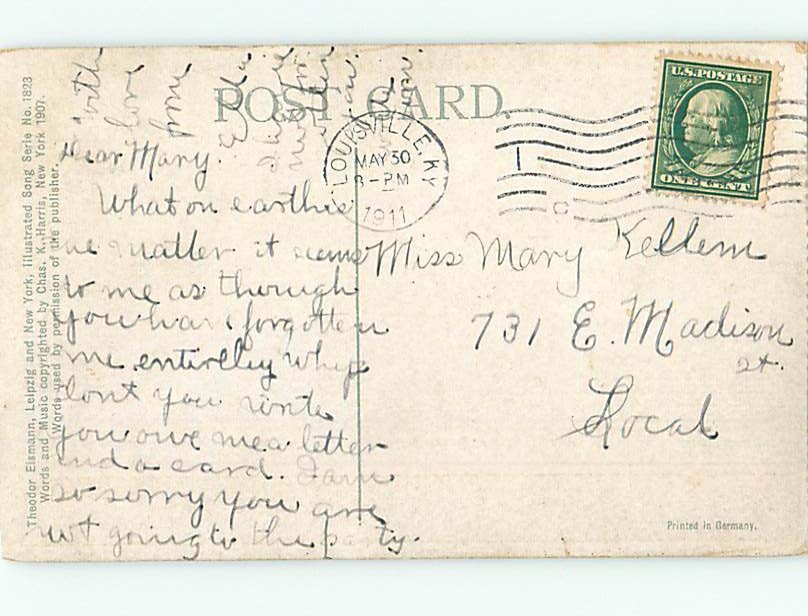 POST CARD.
U.S. POSTAGE
ONE CENT
LOUISVILLE, KY
MAY 30
8-PM
1911
Dear Mary.
What on earth is
the matter it seems
to me as through
you have forgotten
me entireley why
dont you write
you owe me a letter
and a card. I am
so sorry you are
not going to the party.
with
love
from
Eda
Miss Mary Kellem
731 E. Madison
st.
Local
Theodor Eismann, Leipzig and New York, Illustrated Song Serie No. 1823
Words and Music copyrighted by Chas. K. Harris, New York 1907.
Words used by permission of the publisher.
Printed in Germany.